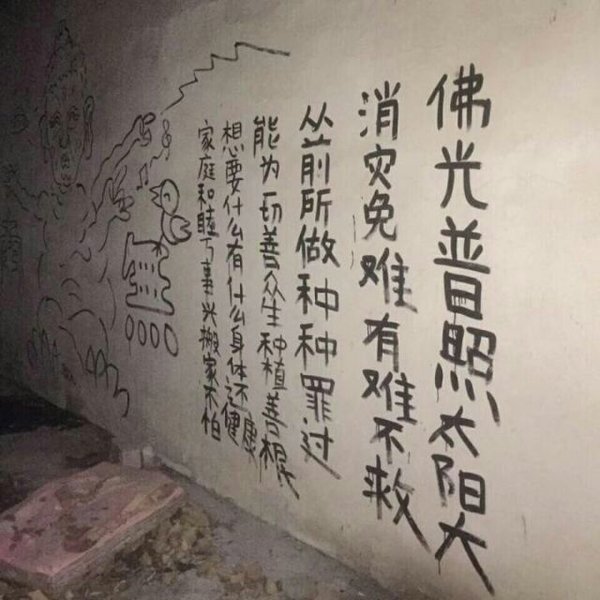 佛光普照太阳大
消灾免难有难不救
丛前所做种种罪过
能为一切善众生种植善根
想要什么有什么身体还健康
家庭和睦万事兴搬家不怕